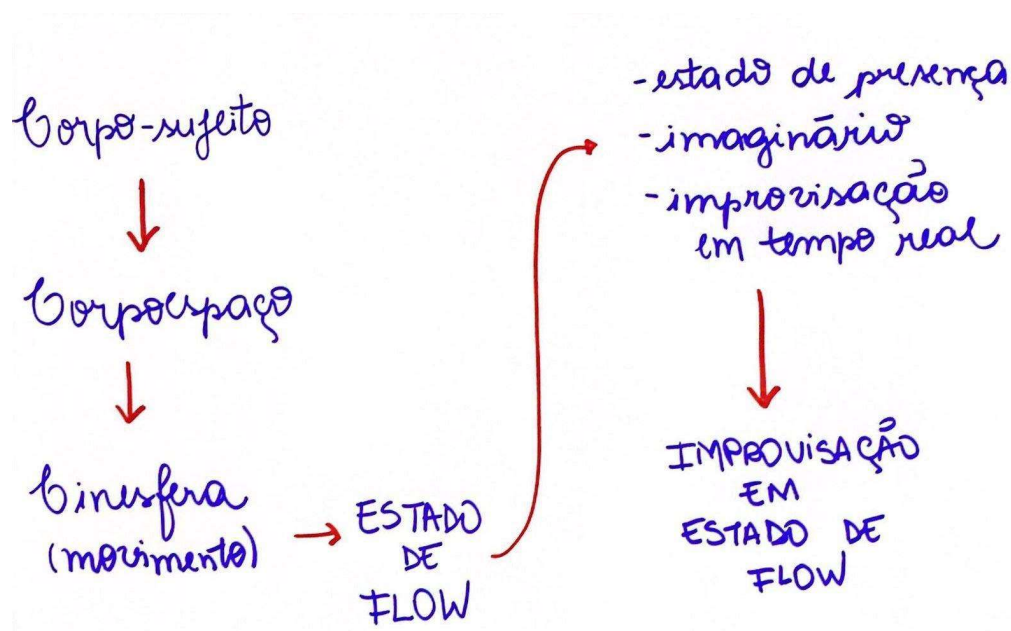 Corpo-sujeito
Corpoespaço
Cinesfera
(movimento)
ESTADO
DE
FLOW
-estado de presença
-imaginário
-improvisação
em tempo real
IMPROVISAÇÃO
EM
ESTADO DE
FLOW